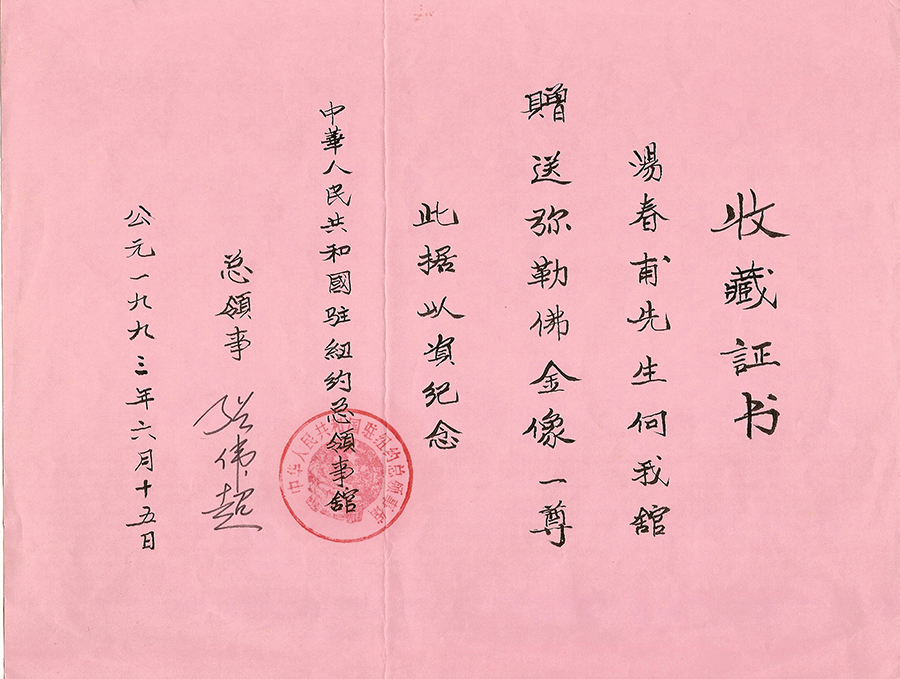 收藏证书
湯春甫先生向我舘
贈送弥勒佛金像一尊
此据以資纪念
中華人民共和國驻紐约总領事舘
中华人民共和国驻纽约总领事馆
总領事 张伟超
公元一九九三年六月十五日